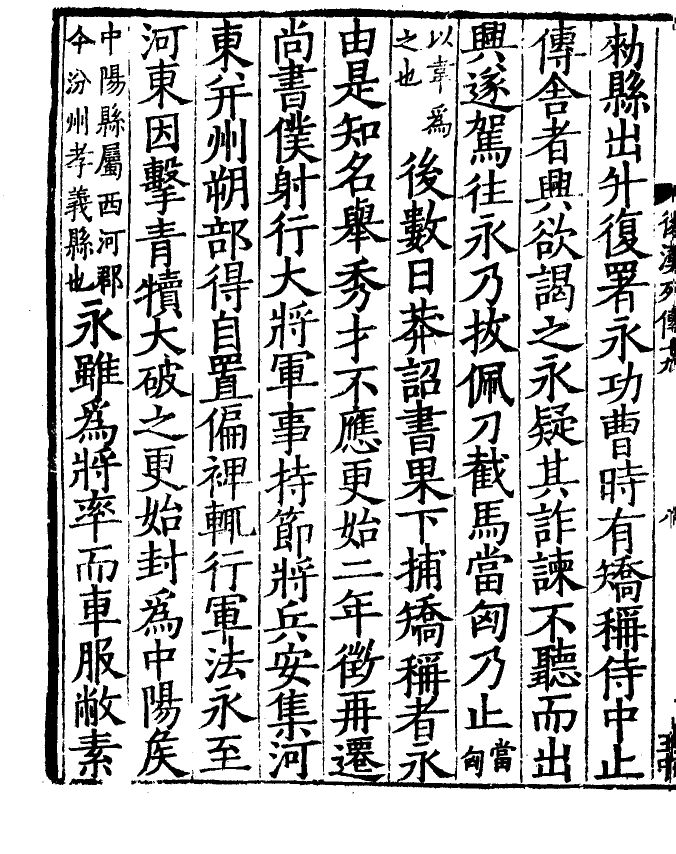 勑縣出升復署永功曹時有矯稱侍中止
傳舍者興欲謁之永疑其詐諫不聽而出
興遂駕往永乃拔佩刀截馬當匈乃止當匈
以韋爲之也後數日莽詔書果下捕矯稱者永
由是知名舉秀才不應更始二年徵再遷
尚書僕射行大將軍事持節將兵安集河
東并州朔部得自置偏裨輒行軍法永至
河東因擊青犢大破之更始封爲中陽矦
中陽縣屬西河郡今汾州孝義縣也永雖爲將率而車服敝素